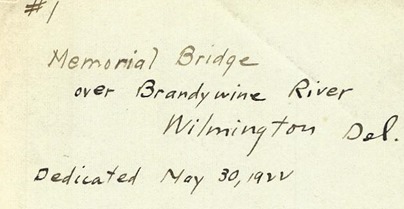 #1
Memorial Bridge
over Brandywine River
Wilmington Del.
Dedicated May 30, 1922